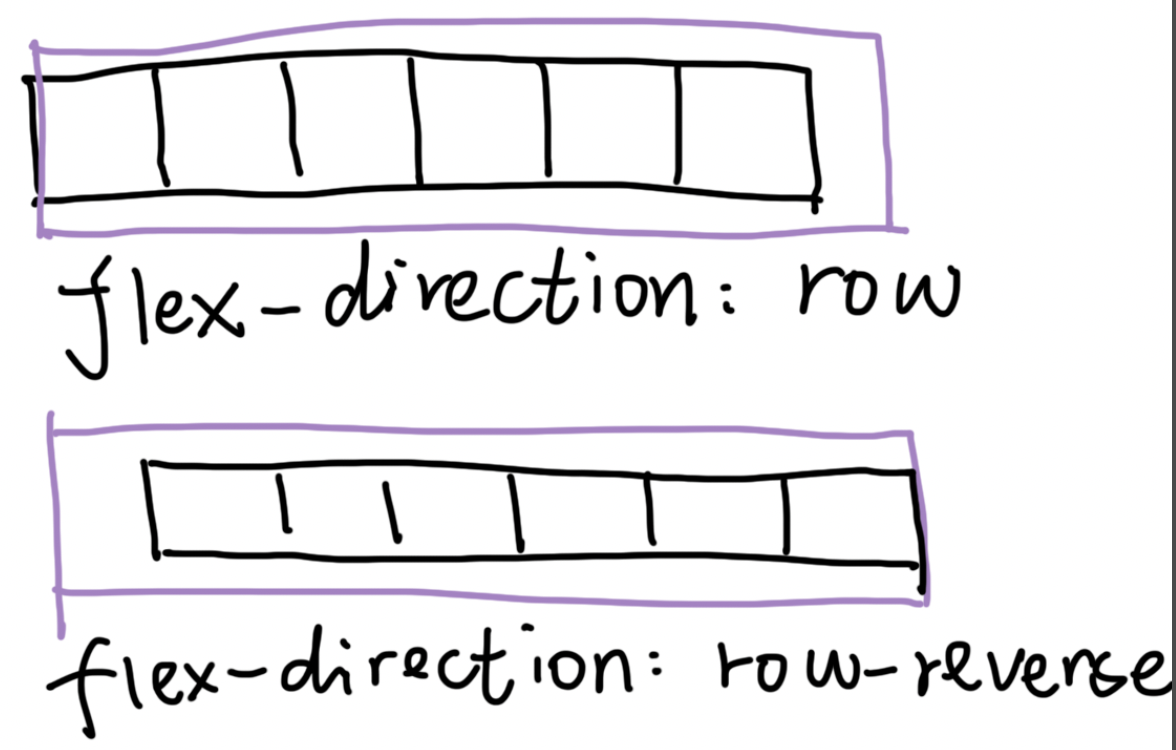 flex-direction: row
flex-direction: row-reverse